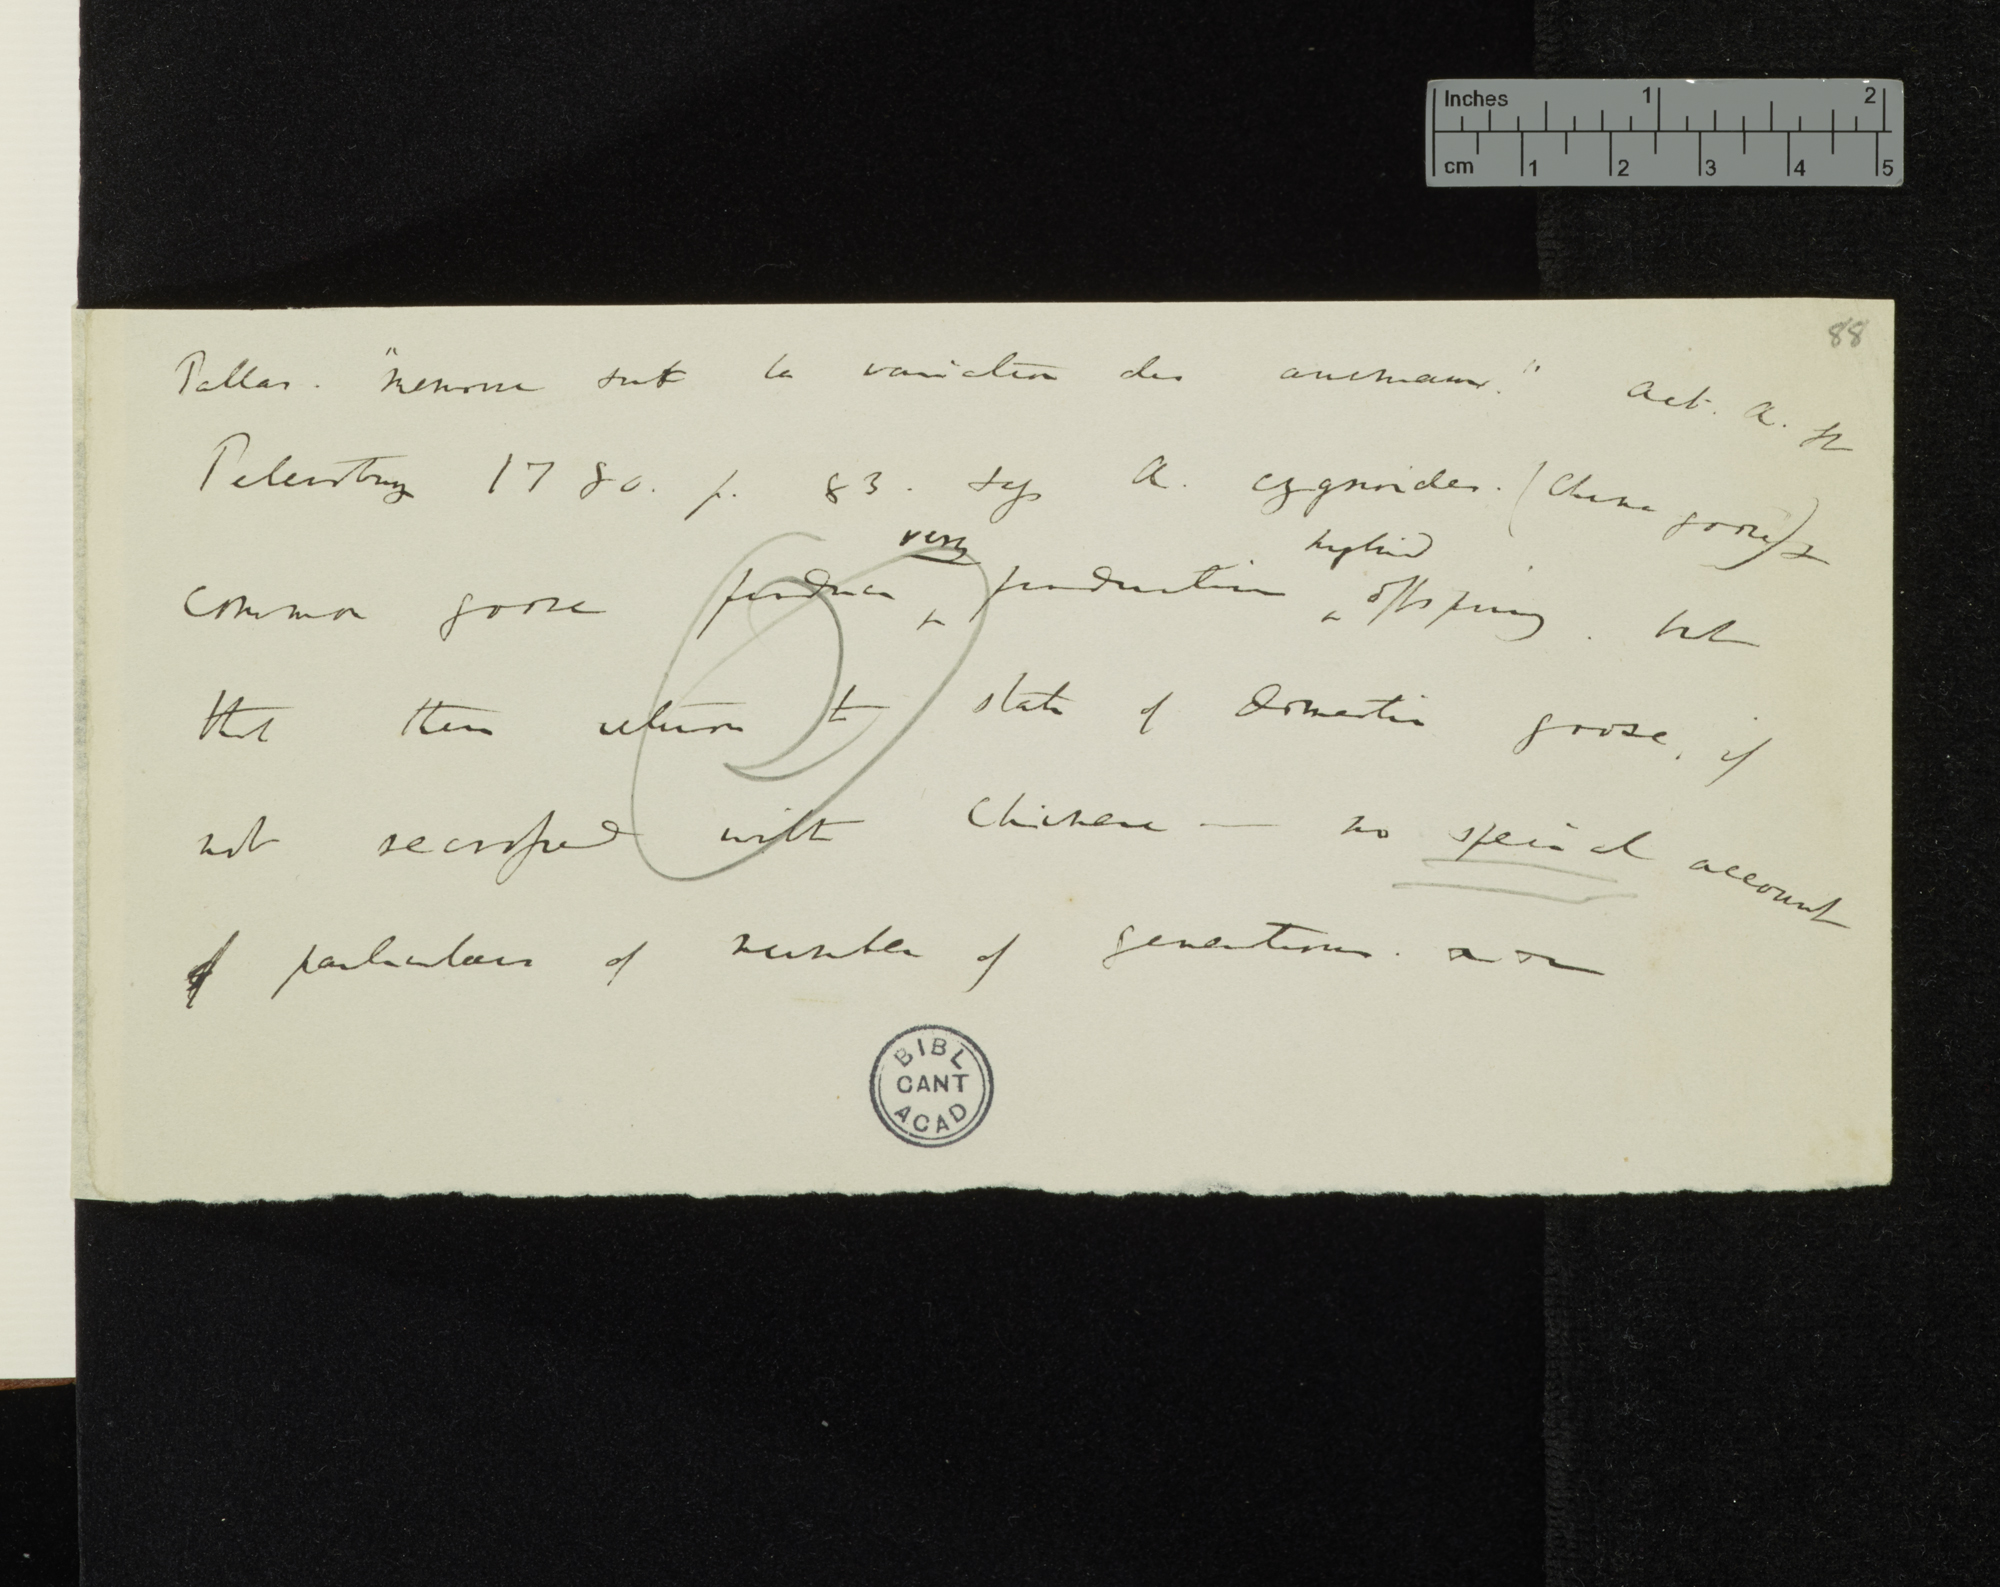 Inches 1 2
cm 1 2 3 4 5
88
Pallas. "Memoire sur la variation des animaux." Act. A. St
Petersburg 1780. p. 83. says A. cygnoides. (China goose) &
very hybrid
common goose produce ^ productive ^ offspring. but
that these return to state of domestic goose, if
not recrossed with Chinese — no special account
of particulars of number of generations.
BIBL
CANT
ACAD